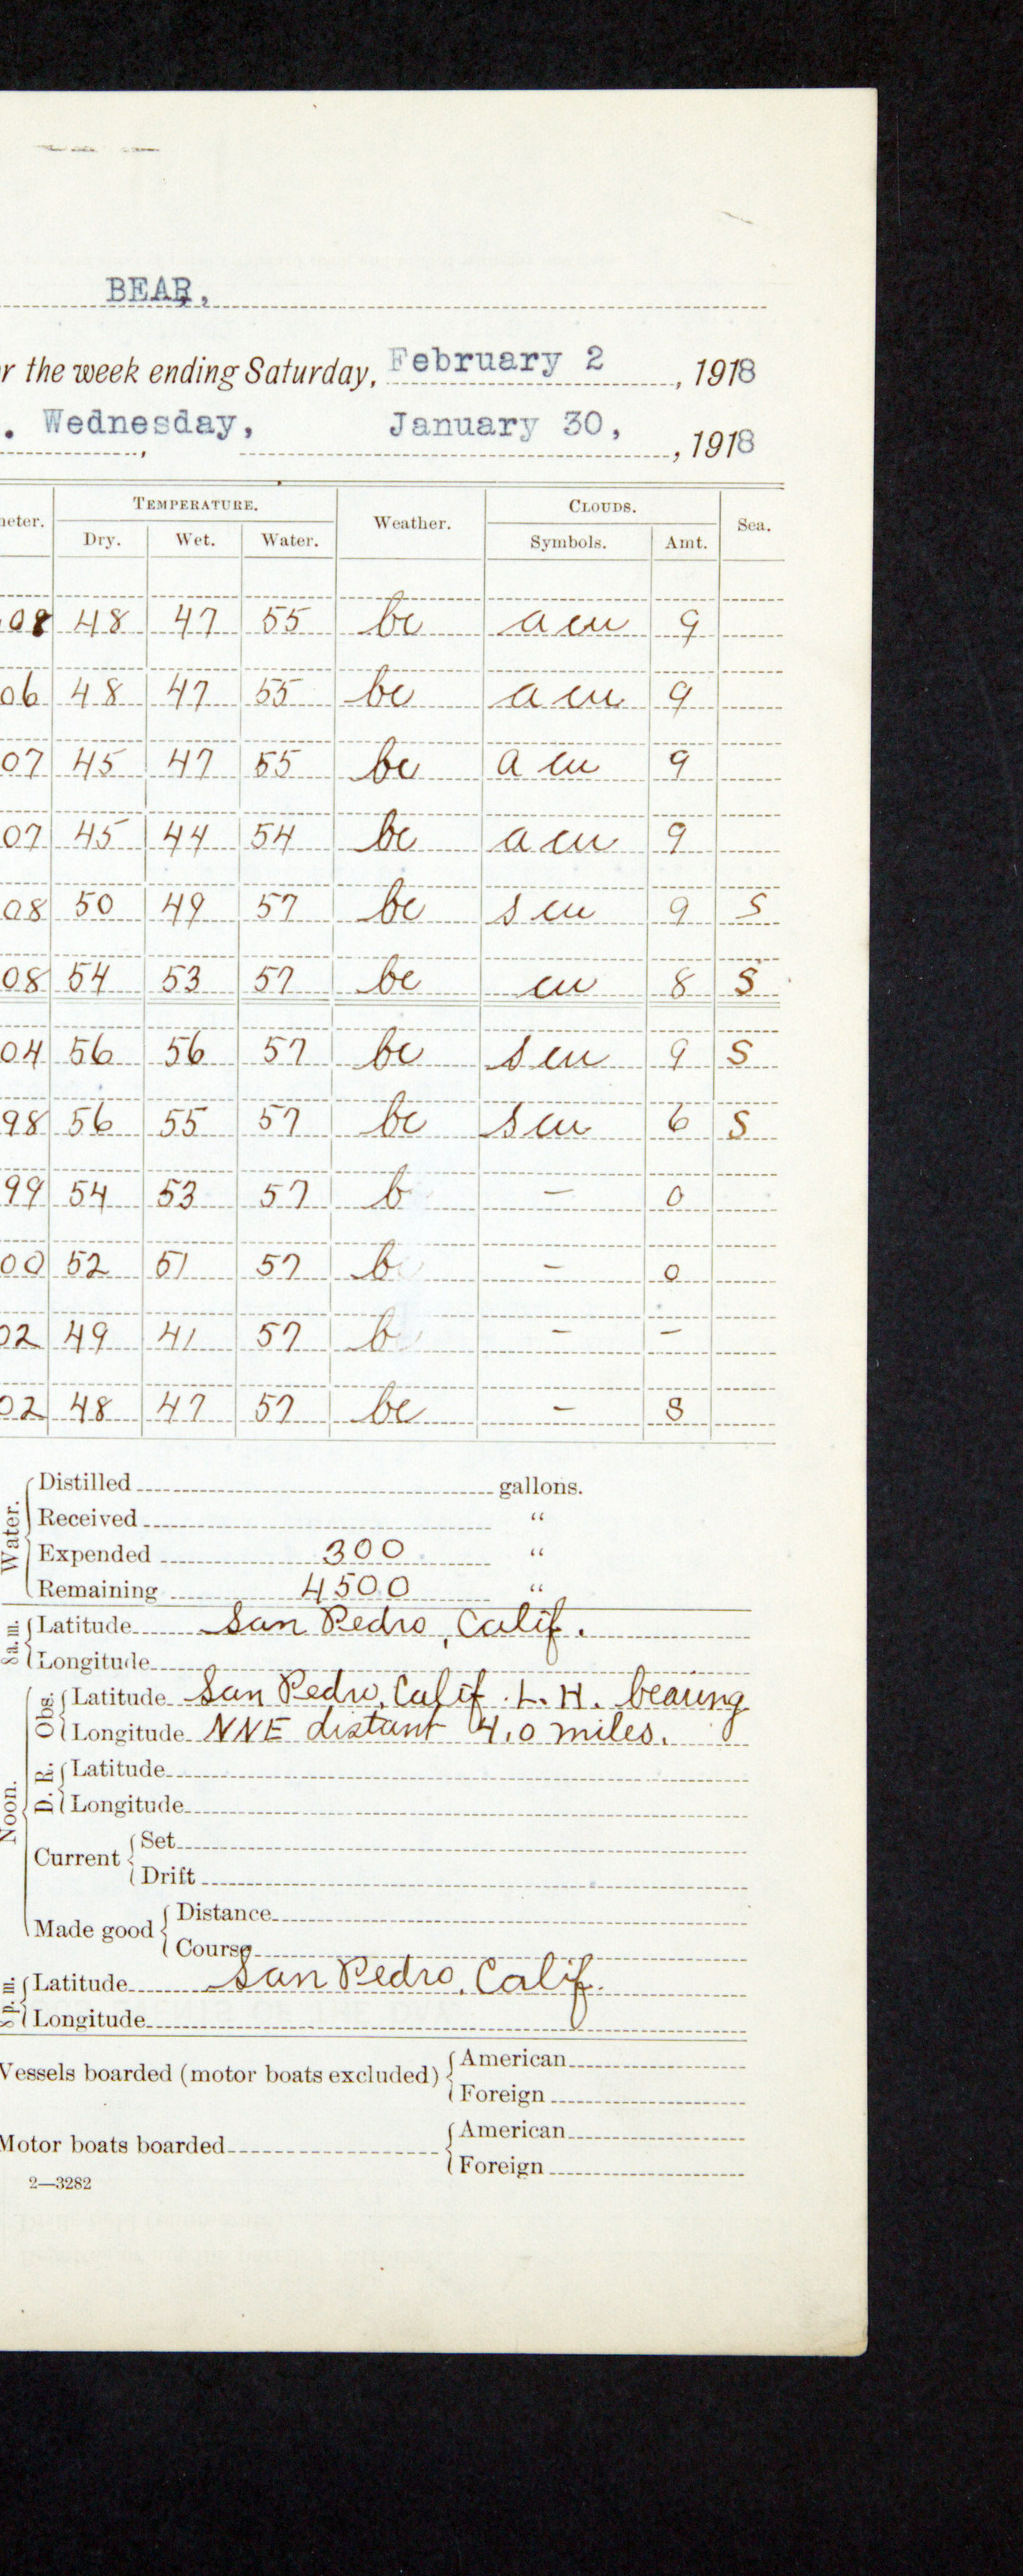 BEAR,
r the week ending Saturday, February 2, 1918
. Wednesday, January 30, , 1918
eter. TEMPERATURE. Weather. CLOUDS. Sea.
Dry. Wet. Water. Symbols. Amt.
08 48 47 55 bc a cu 9
06 48 47 55 bc a cu 9
07 45 47 55 bc a cu 9
07 45 44 54 bc a cu 9
08 50 49 57 bc s cu 9 S
08 54 53 57 bc cu 8 S
04 56 56 57 bc s cu 9 S
98 56 55 57 bc s cu 6 S
99 54 53 57 b — 0
00 52 51 57 b — 0
02 49 41 57 b — —
02 48 47 57 bc — 8
Water. Distilled gallons.
Received "
Expended 300 "
Remaining 4500 "
8 a.m. Latitude San Pedro, Calif.
Longitude
Noon. Obs. Latitude San Pedro, Calif. L. H. bearing
Longitude NNE distant 4.0 miles.
D. R. Latitude
Longitude
Current Set
Drift
Made good Distance
Course
8 p.m. Latitude San Pedro, Calif.
Longitude
Vessels boarded (motor boats excluded) American
Foreign
Motor boats boarded American
Foreign
2—3282